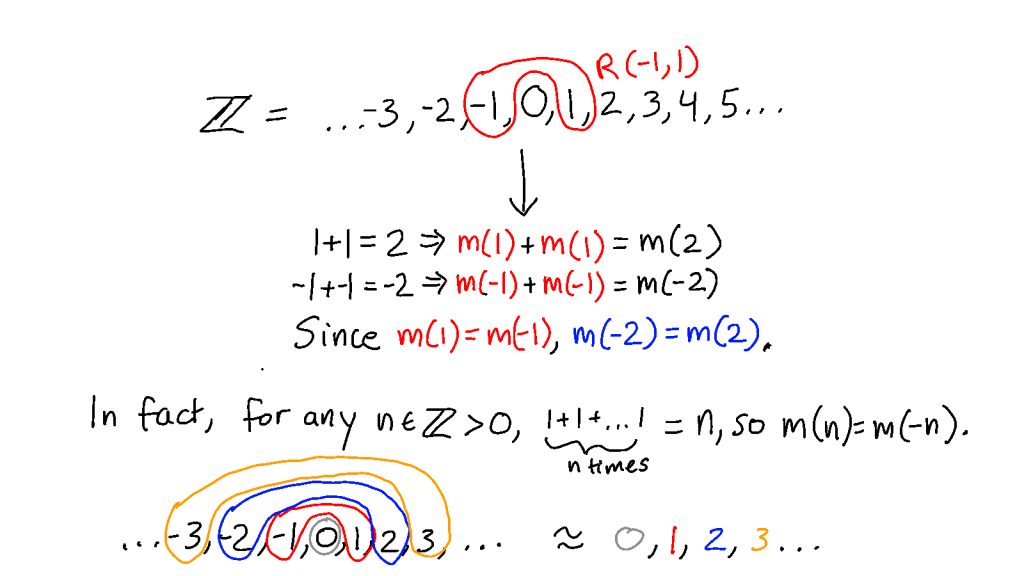 R(-1,1)
ℤ = ...-3,-2,-1,0,1,2,3,4,5...
1+1=2⇒m(1)+m(1)=m(2)
-1+-1=-2⇒m(-1)+m(-1)=m(-2)
Since m(1)=m(-1), m(-2)=m(2).
In fact, for any n∈ℤ>0, 1+1+...1 = n, so m(n)=m(-n).
n times
...-3,-2,-1,0,1,2,3,... ≈ 0,1,2,3...